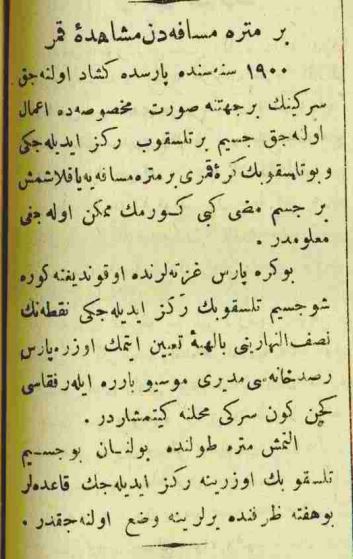 بر متره مسافه‌دن مشاهدهٔ قمر
١٩٠٠ سنه‌سنده پارسده كشاد اولنه‌جق
سركينك بر جهتنه صورت مخصوصه‌ده اعمال
اوله‌جق جسيم بر تلسقوب ركز ايديله‌جكى
و بو تلسقوبك كرهٔ قمرى بر متره مسافه‌يه ياقلاشمش
بر جسم مضى كبى كورمك ممكن اوله‌جغى
معلومدر .
بو كره پارس غزته‌لرنده اوقونديغنه كوره
شو جسيم تلسقوبك ركز ايديله‌جكى نقطه‌نك
نصف النهارينى بالهيئه تعيين ايتمك اوزره پارس
رصدخانه‌سى مديرى موسيو بارره ايله رفقاسى
كچن كون سركى محلنه كيتمشلردر .
التمش متره طولنده بولنان بو جسيم
تلسقوبك اوزرينه ركز ايديله‌جك قاعده‌لر
بو هفته ظرفنده يرلرينه وضع اولنه‌جقدر .